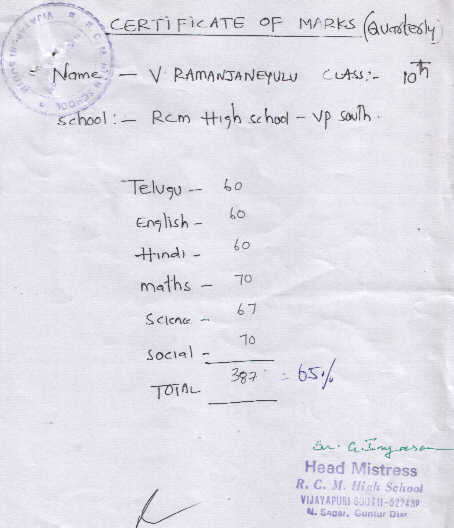 CERTIFICATE OF MARKS (Quarterly)
Name - V RAMANJANEYULU CLASS:- 10th
School:- Rcm High school - Vp south.
Telugu -- 60
English - 60
Hindi - 60
maths - 70
Science - 67
Social - 70
TOTAL 387 = 65%
Head Mistress
R. C. M. High School
VIJAYAPURI SOUTH-522439
N. Sagar, Guntur Dist.